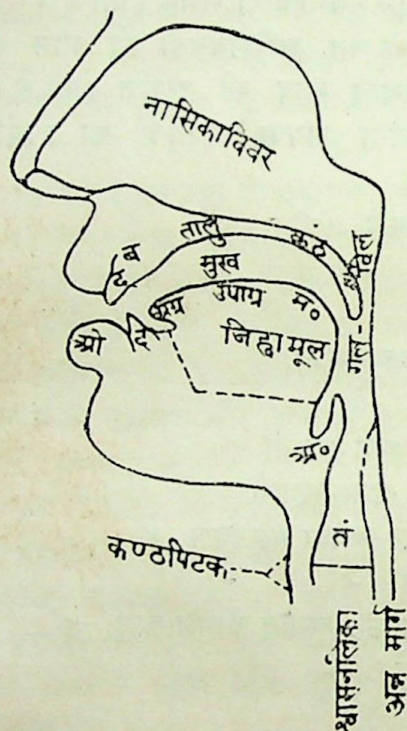 नासिकाविवर
तालु
कंठ
व
द
मुख
अग्र
उपाग्र
म॰
जिह्वामूल
ओ
दं
गल-बिल
अ॰
तं.
कण्ठपिटक
श्वासनलिका
अन्न मार्ग